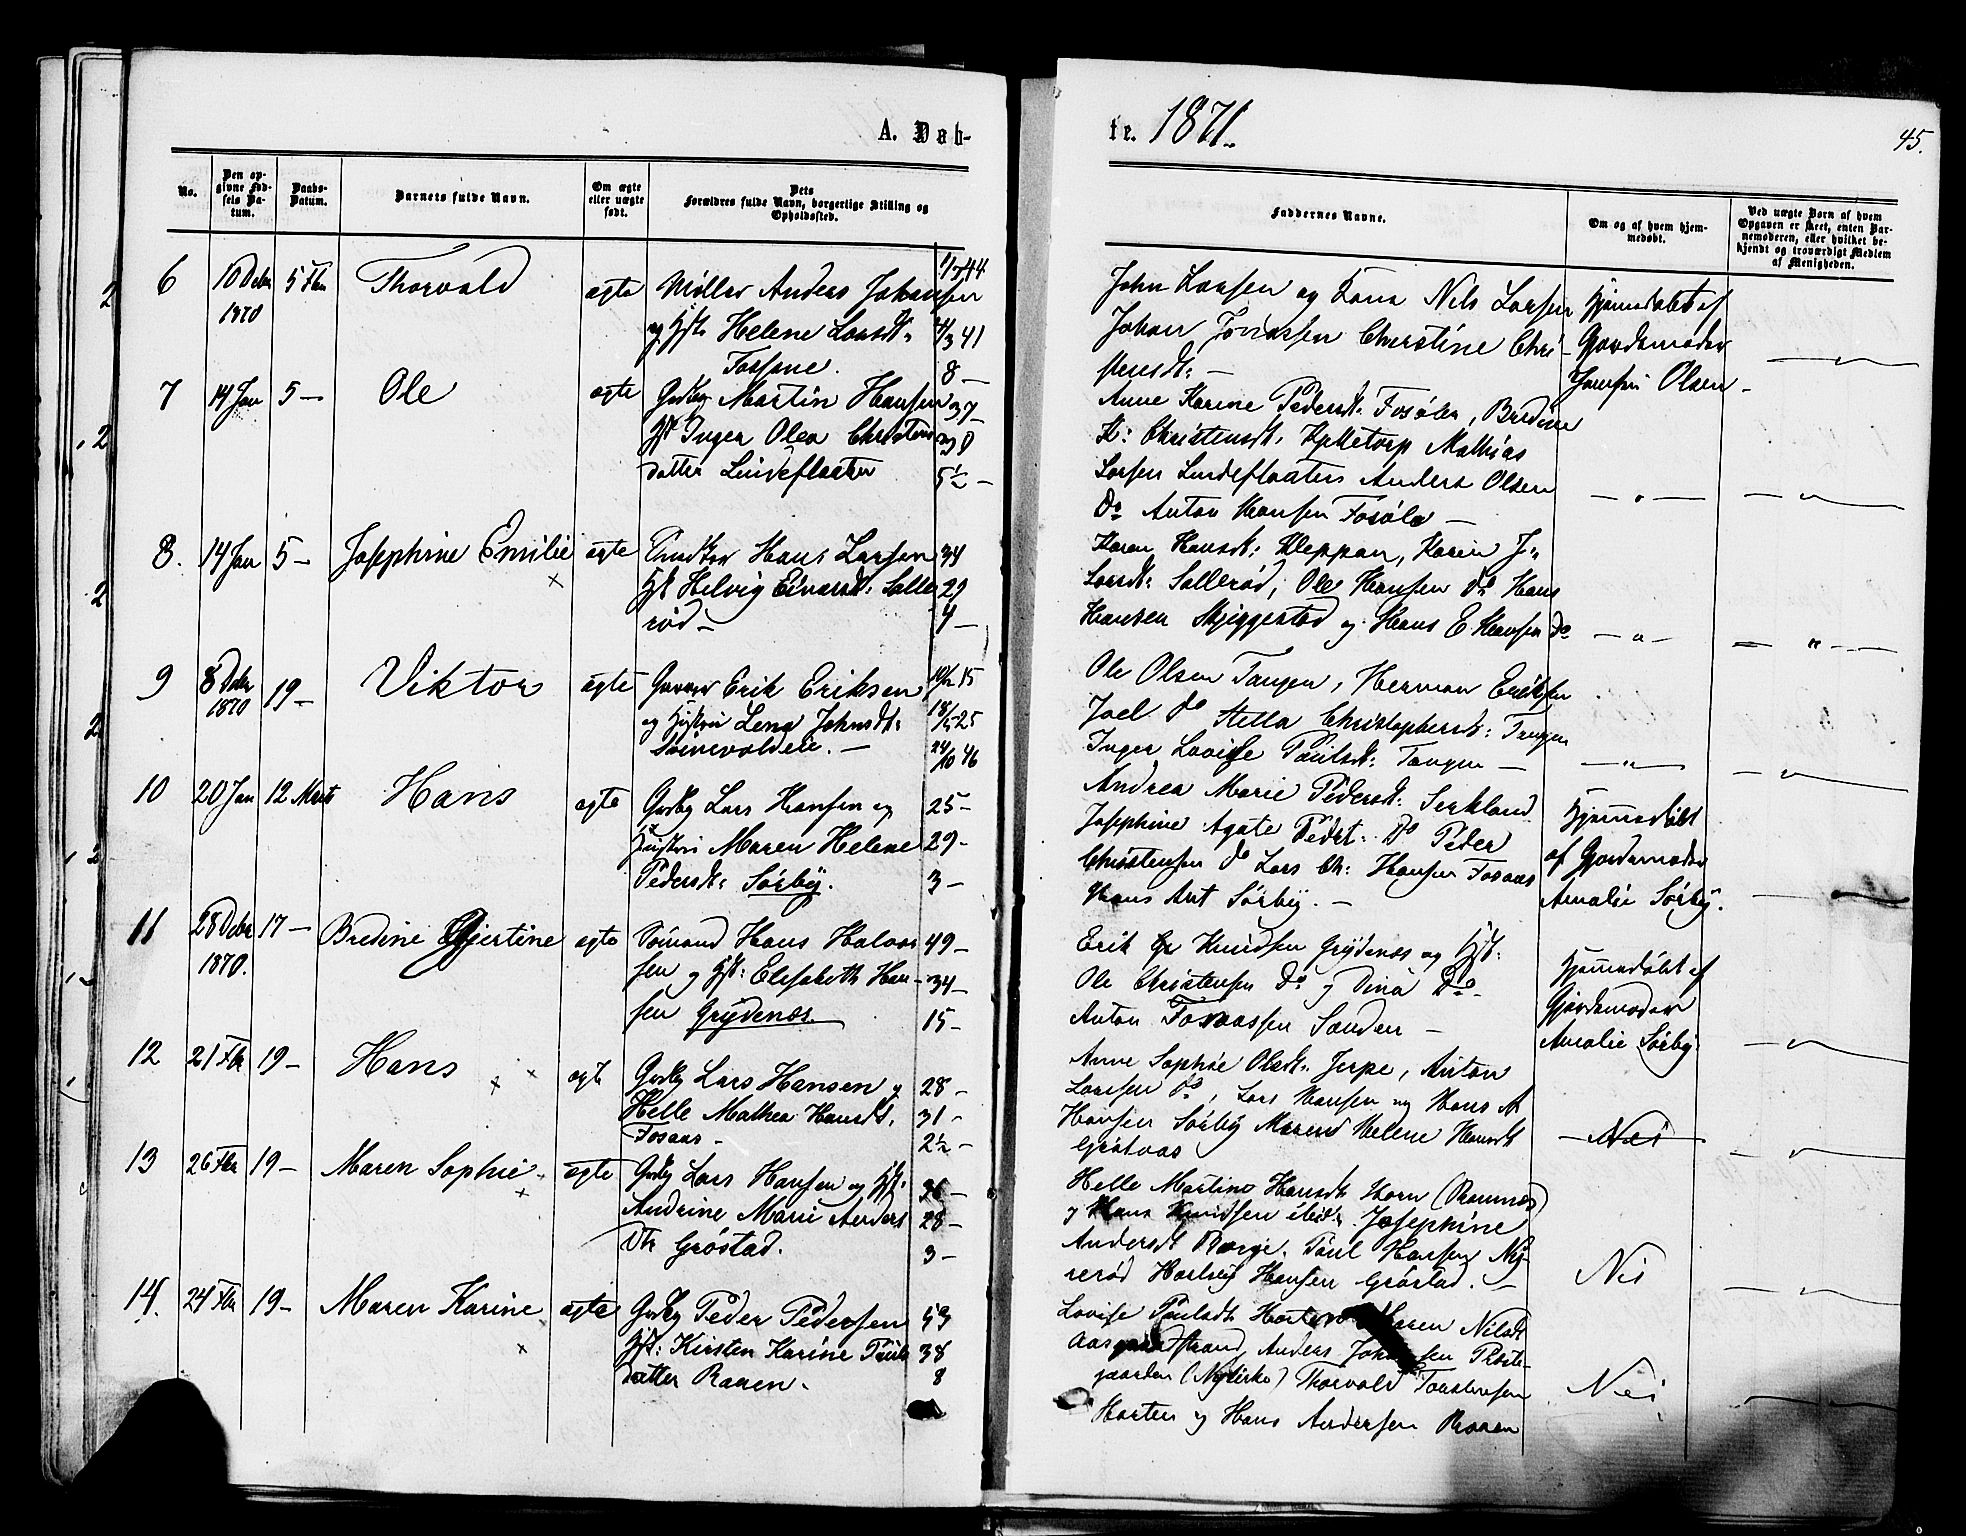 A. Døb-
te. 1871.
45.
No.
Den opgivne Fødsels Datum.
Daabs-Datum.
Barnets fulde Navn.
Om ægte eller uægte født.
Dets Forældres fulde Navn, borgerlige Stilling og Opholdssted.
Faddernes Navne.
Om og af hvem hjemmedøbt.
Ved uægte Børn af hvem Opgaven er skeet, enten Barnemoderen, eller hvilket bekjendt og troværdigt Medlem af Menigheden.
6 10 Debr 1870 5 Fbr Thorvald ægte
Møller Anders Johansen
og Hst: Helene Larsdt: 41
Fossane. 8 —
John Larsen og Kona Nils Larsen
Johan Jonassen Christine Chri-
stensdt: —
Hjemmedøbt af
Gjordemoder
Olsen
7 14 Jan 5 — Ole ægte
Gmbg Martin Hansen 37
Hst Inger Olea Christens 38
datter Lindeflaaten 5½ —
Anne Karine Pedersdt: Fosøle, Bredine
K: Christensdt: Mathias
Larsen Lindeflaaten Anders Olsen
Do Anton Hansen Fosøle —
— " —
8. 14 Jan 5 — Josephine Emilie ægte
Hans Larsen 34
Hst Helvig Eivarsdt: Solle 29
rød — 4 —
Karen Hansdt: Kleppan, Karen J:
Larsdt: Sollerød, Ole Hansen Do Hans
Hansen Skjeggestad og Hans E. Hansen Do
— " —
9 8 Debr 1870 19 — Viktor ægte
Erik Eriksen 15
og Hustru Lena Johnsdt: 25
46
Ole Olsen Tangen, Herman Eriksen
Joel Do Stella Christophersdt: Tangen
Inger Lovise Paulsdt: Tangen —
— " —
10 20 Jan 12 Marts Hans ægte
Gmbg Lars Hansen og 25 —
Hustru Maren Helene 29 —
Pedersdt: Sørby. 3 —
Andrea Marie Pedersdt: Serkland
Josephine Agate Pedst: Do Peder
Christensen Do Lars Chr: Hansen Fosaas
Hans Ant Sørby. —
Hjemmedøbt
af Gjordemoder
Amalie Sørby.
11 28 Debr 1870. 17 — Bredine Gjertine ægte
Sømand Hans Halvor 49 —
sen og Hst: Elisabeth Han- 34 —
sen Grydenæs. 15 —
Erik Gr Knudsen Grydenæs og Hst:
Ole Christensen Do og Dina Do —
Anton Tovaassen Sanden —
Hjemmedøbt af
Gjordemoder
Amalie Sørby.
12 21 Fbr 19 — Hans ægte
Gmbg Lars Hansen og 28 —
Helle Mathea Hansdt. 31 —
Fosaas — 2½ —
Anne Sophie Olsdt: Jerpe, Anton
Larsen Do, Lars Hansen og Hans A
Hansen Sørby Maren Helene Hansdt
— Nei —
13 26 Fbr 19 — Maren Sophie ægte
Gmbg Lars Hansen og Hst: 36 —
Andrine Marie Anders 28 —
Dtr Grøstad. 3 —
Helle Martine Hansdt Horn (Ramnæs)
og Hans Knudsen ibid: Josephine
Andersdt Berge. Paul Hansen Ny-
rerød Hansen Grøstad. —
Nei
14. 24 Fbr 19 — Maren Karine ægte
Gmbg Peder Pedersen 53
Hst: Kirsten Karine Pauls 38
datter Raaen. 8
Lovise Paulsdt Horten Karen Nilsdt
Aasgaardstrand, Anders Johansen Præste-
gaarden (Nykirke) Thorvald
Horten og Hans Andersen Raaen
Nei